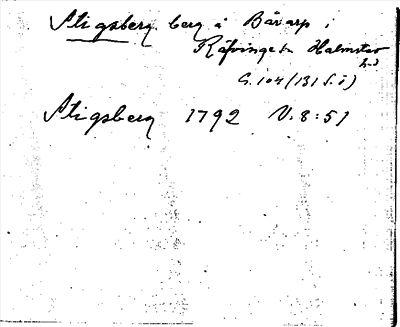 Stigsberg. berg å Bårarp i
Räfvinge sn Halmstad
h.d
G. 104 (131 f. ö)
Stigsberg 1792 V. 8: 51